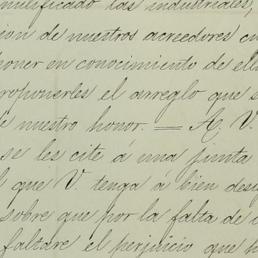 nutificado las industriales,
ion de nuestros acreedores cu
poner en conocimiento de ell
roponerles el arreglo que s
e nuestro honor. = A. V.
se les cite á una junta
l que V. tenga á bien desi
sobre que por la falta de
faltare el perjuicio que h